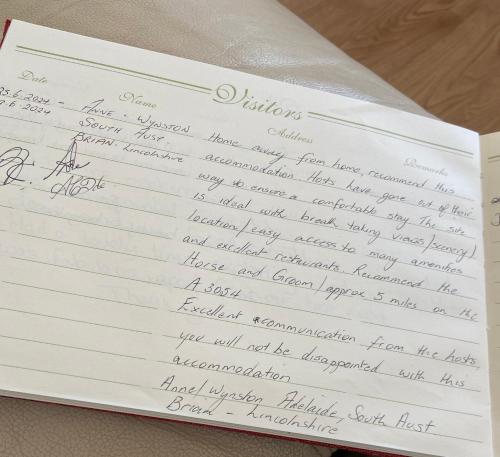 Visitors
Date Name Address Remarks
25.6.2024 - ANNE . WYNSTON Home away from home, recommend this
9.6.2024 SOUTH AUST. accommodation Hosts have gone out of their
BRIAN. Lincolnshire way to ensure a comfortable stay The site
is ideal with break taking views/scenery/
location/easy access to many amenities
and excellent restaurants. Recommend the
Horse and Groom/approx 5 miles on the
A 3054
Excellent communication from the hosts,
you will not be disappointed with this
accommodation
Anne/Wynston Adelaide, South Aust
Brian - Lincolnshire